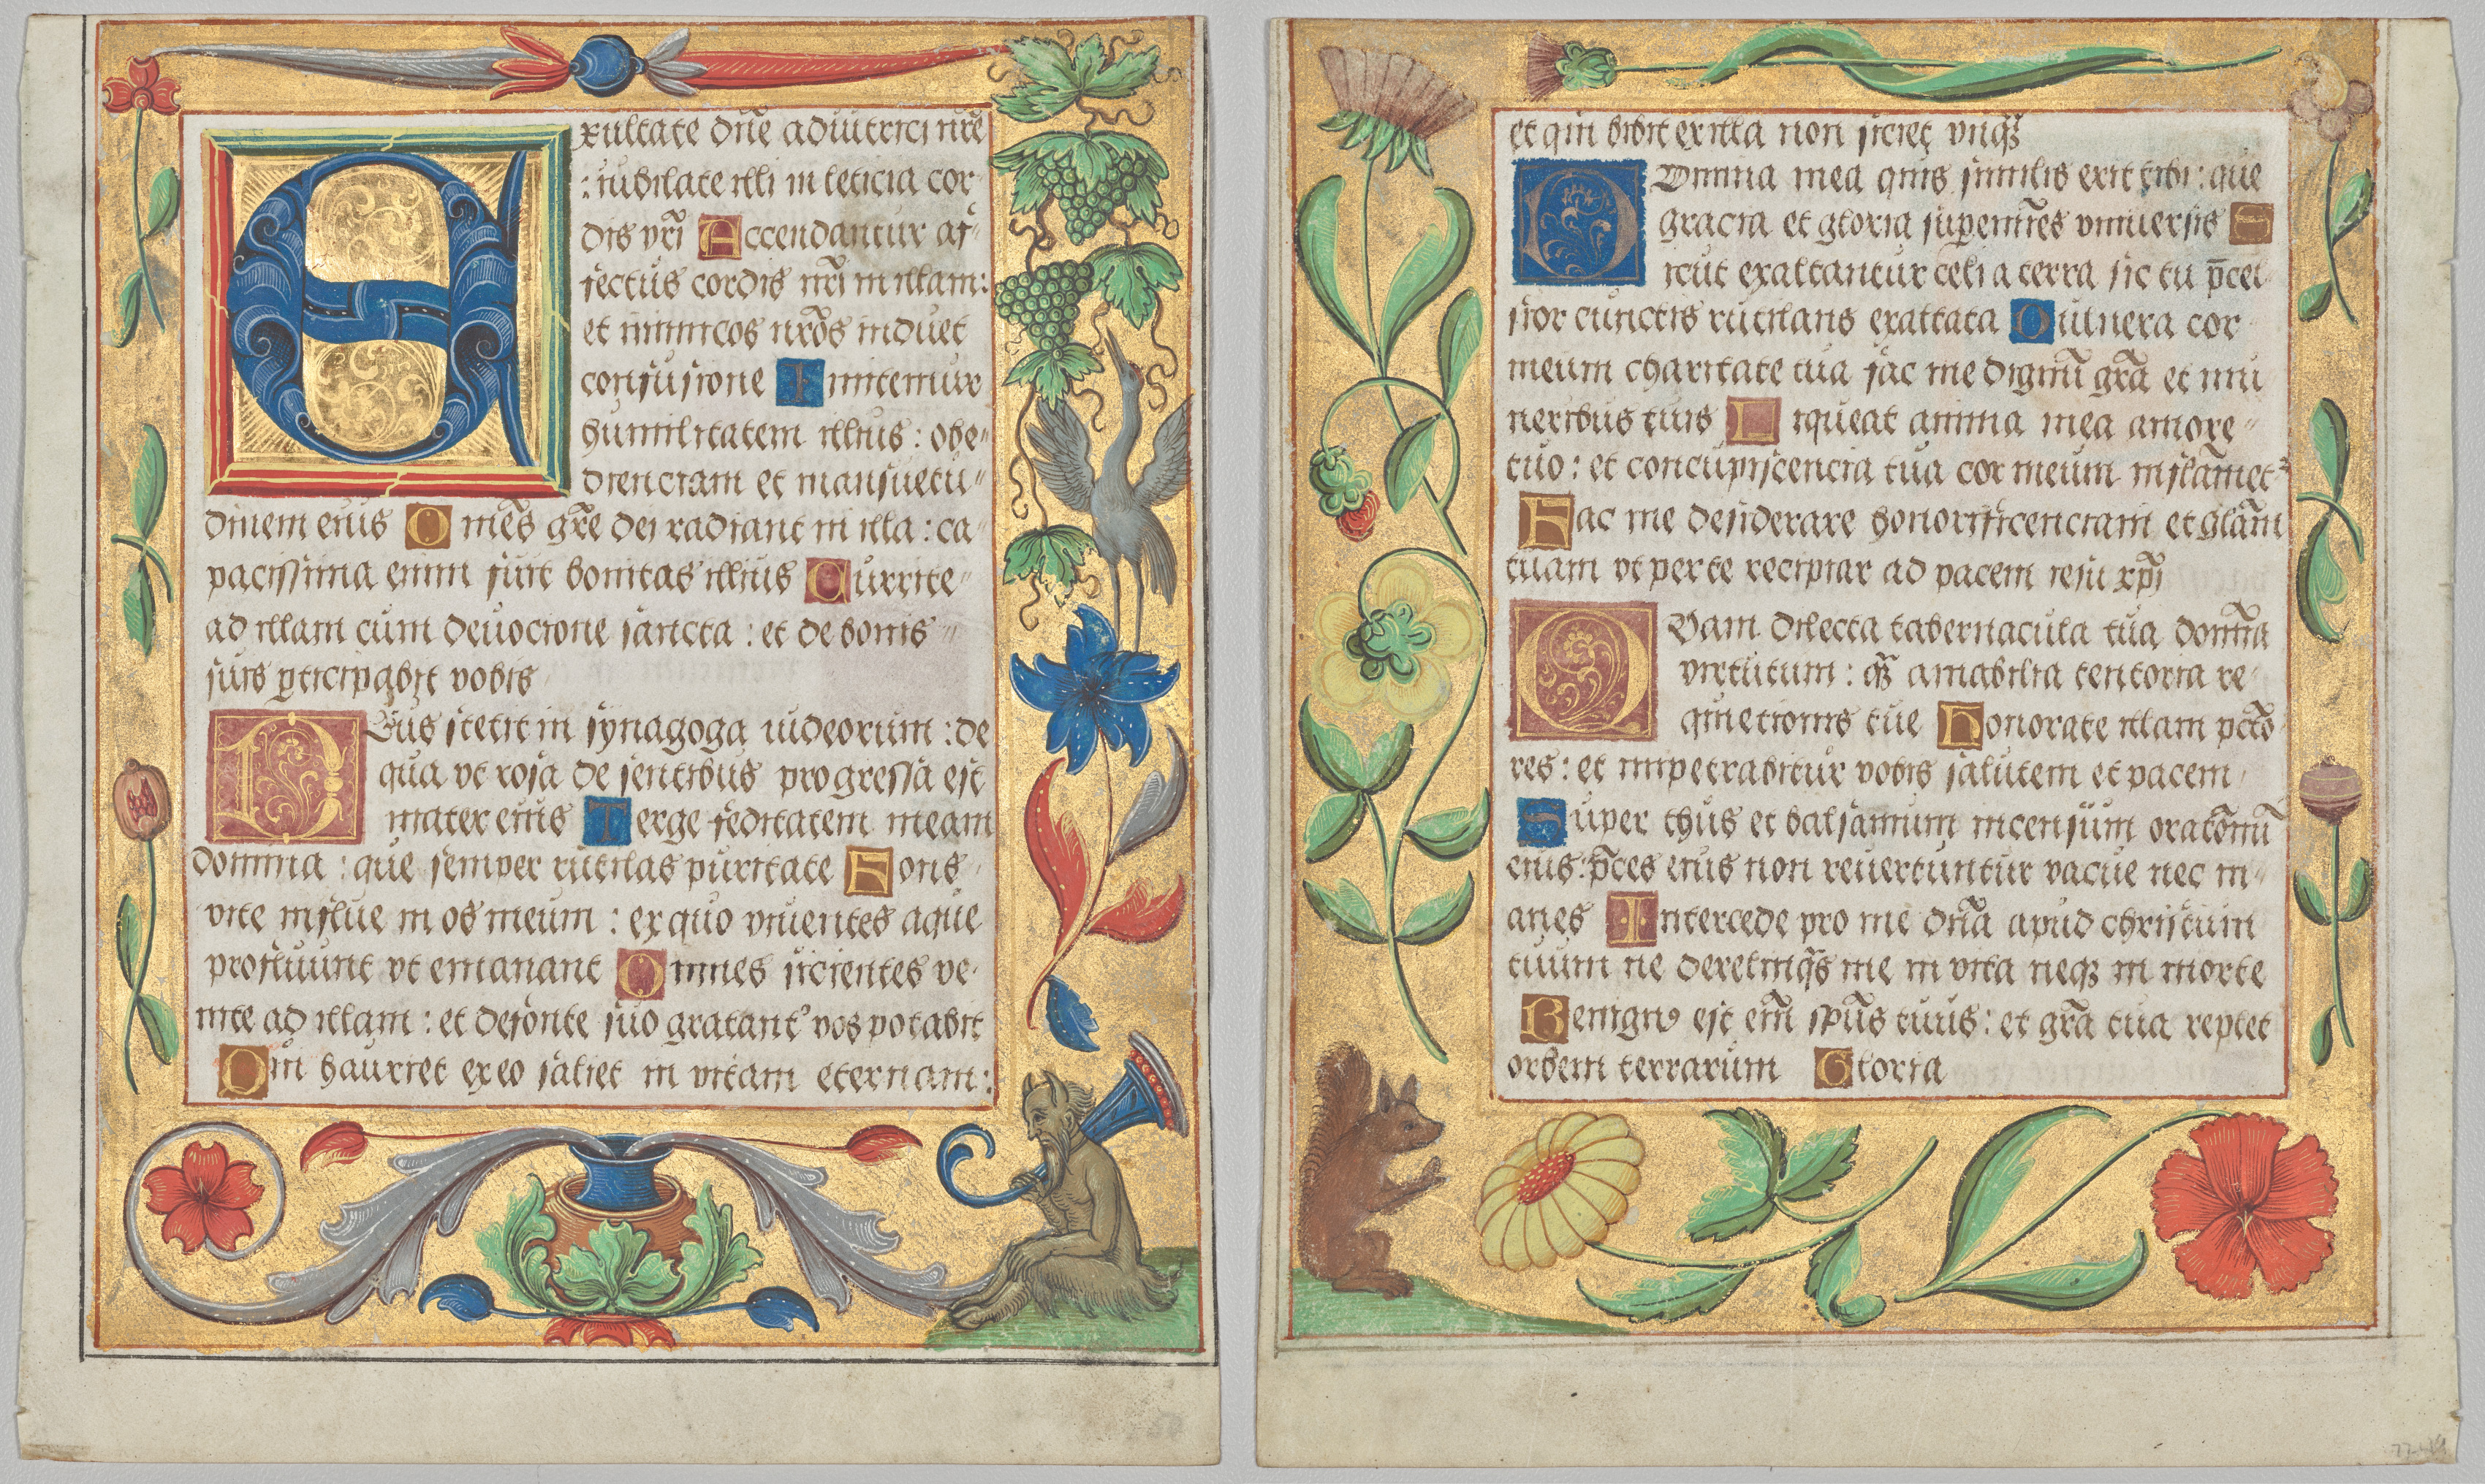 Exultate dn̄e adiutrici nr̄e
: iubilate illi in leticia cor
dis vr̄i Accendantur af-
fectus cordis nr̄i in illam:
et inimicos nr̄os induet
confusione Imitemur
humilitatem illius: obe-
dienciam et mansuetu-
dinem eius Omēs gr̄e dei radiant in illa: ca-
pacissima enim fuit bonitas illius Currite
ad illam cum deuocione sancta: et de bonis
suis ꝑticipabit vobis
Deus stetit in synagoga iudeorum: de
qua vt rosa de sentibus progressa est
mater eius Terge feditatem meam
domina: que semper rutilas puritate Fons
vite influe in os meum: ex quo viuentes aque
profluunt vt emanant Omnes sicientes ve-
nite ad illam: et de fonte suo gratant' vos potabit
Qui hauriet ex eo saliet in vitam eternam:
et qui bibit ex illa non siciet vnqꝫ
Domina mea quis similis erit tibi: que
gracia et gloria superemi̅es vniuersis S
icut exaltantur celi a terra sic tu p̄cel
sior cunctis rutilans exaltata Vulnera cor
meum charitate tua fac me dignū gr̄a et mu
neribus tuis Liqueat anima mea amore
tuo: et concupiscencia tua cor meum inflāmet
Fac me desiderare honorificenciam et glām
tuam vt per te recipiar ad pacem iesu xp̄i
Quam dilecta tabernacula tua domīa
virtutum: qꝫ amabilia tentoria re
quietionis tue Honorate illam pctō
res: et impetrabitur vobis salutem et pacem
Super thus et balsamum incensum oratōnū
eius: p̄ces eius non reuertuntur vacue nec in-
anes Intercede pro me dn̄a apud christum
tuum ne derelinqās me in vita neqꝫ in morte
Benignꝰ est em̄ sp̄us tuus: et gr̄a tua replet
orbem terrarum Gloria